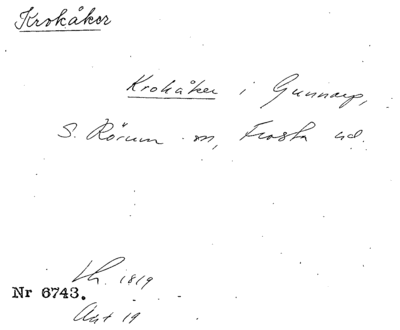 Krokåker
Krokåker i Gunnarp,
S. Rörum sn, Frosta hd.
Lh. 1819
Nr 6743.
Akt 19